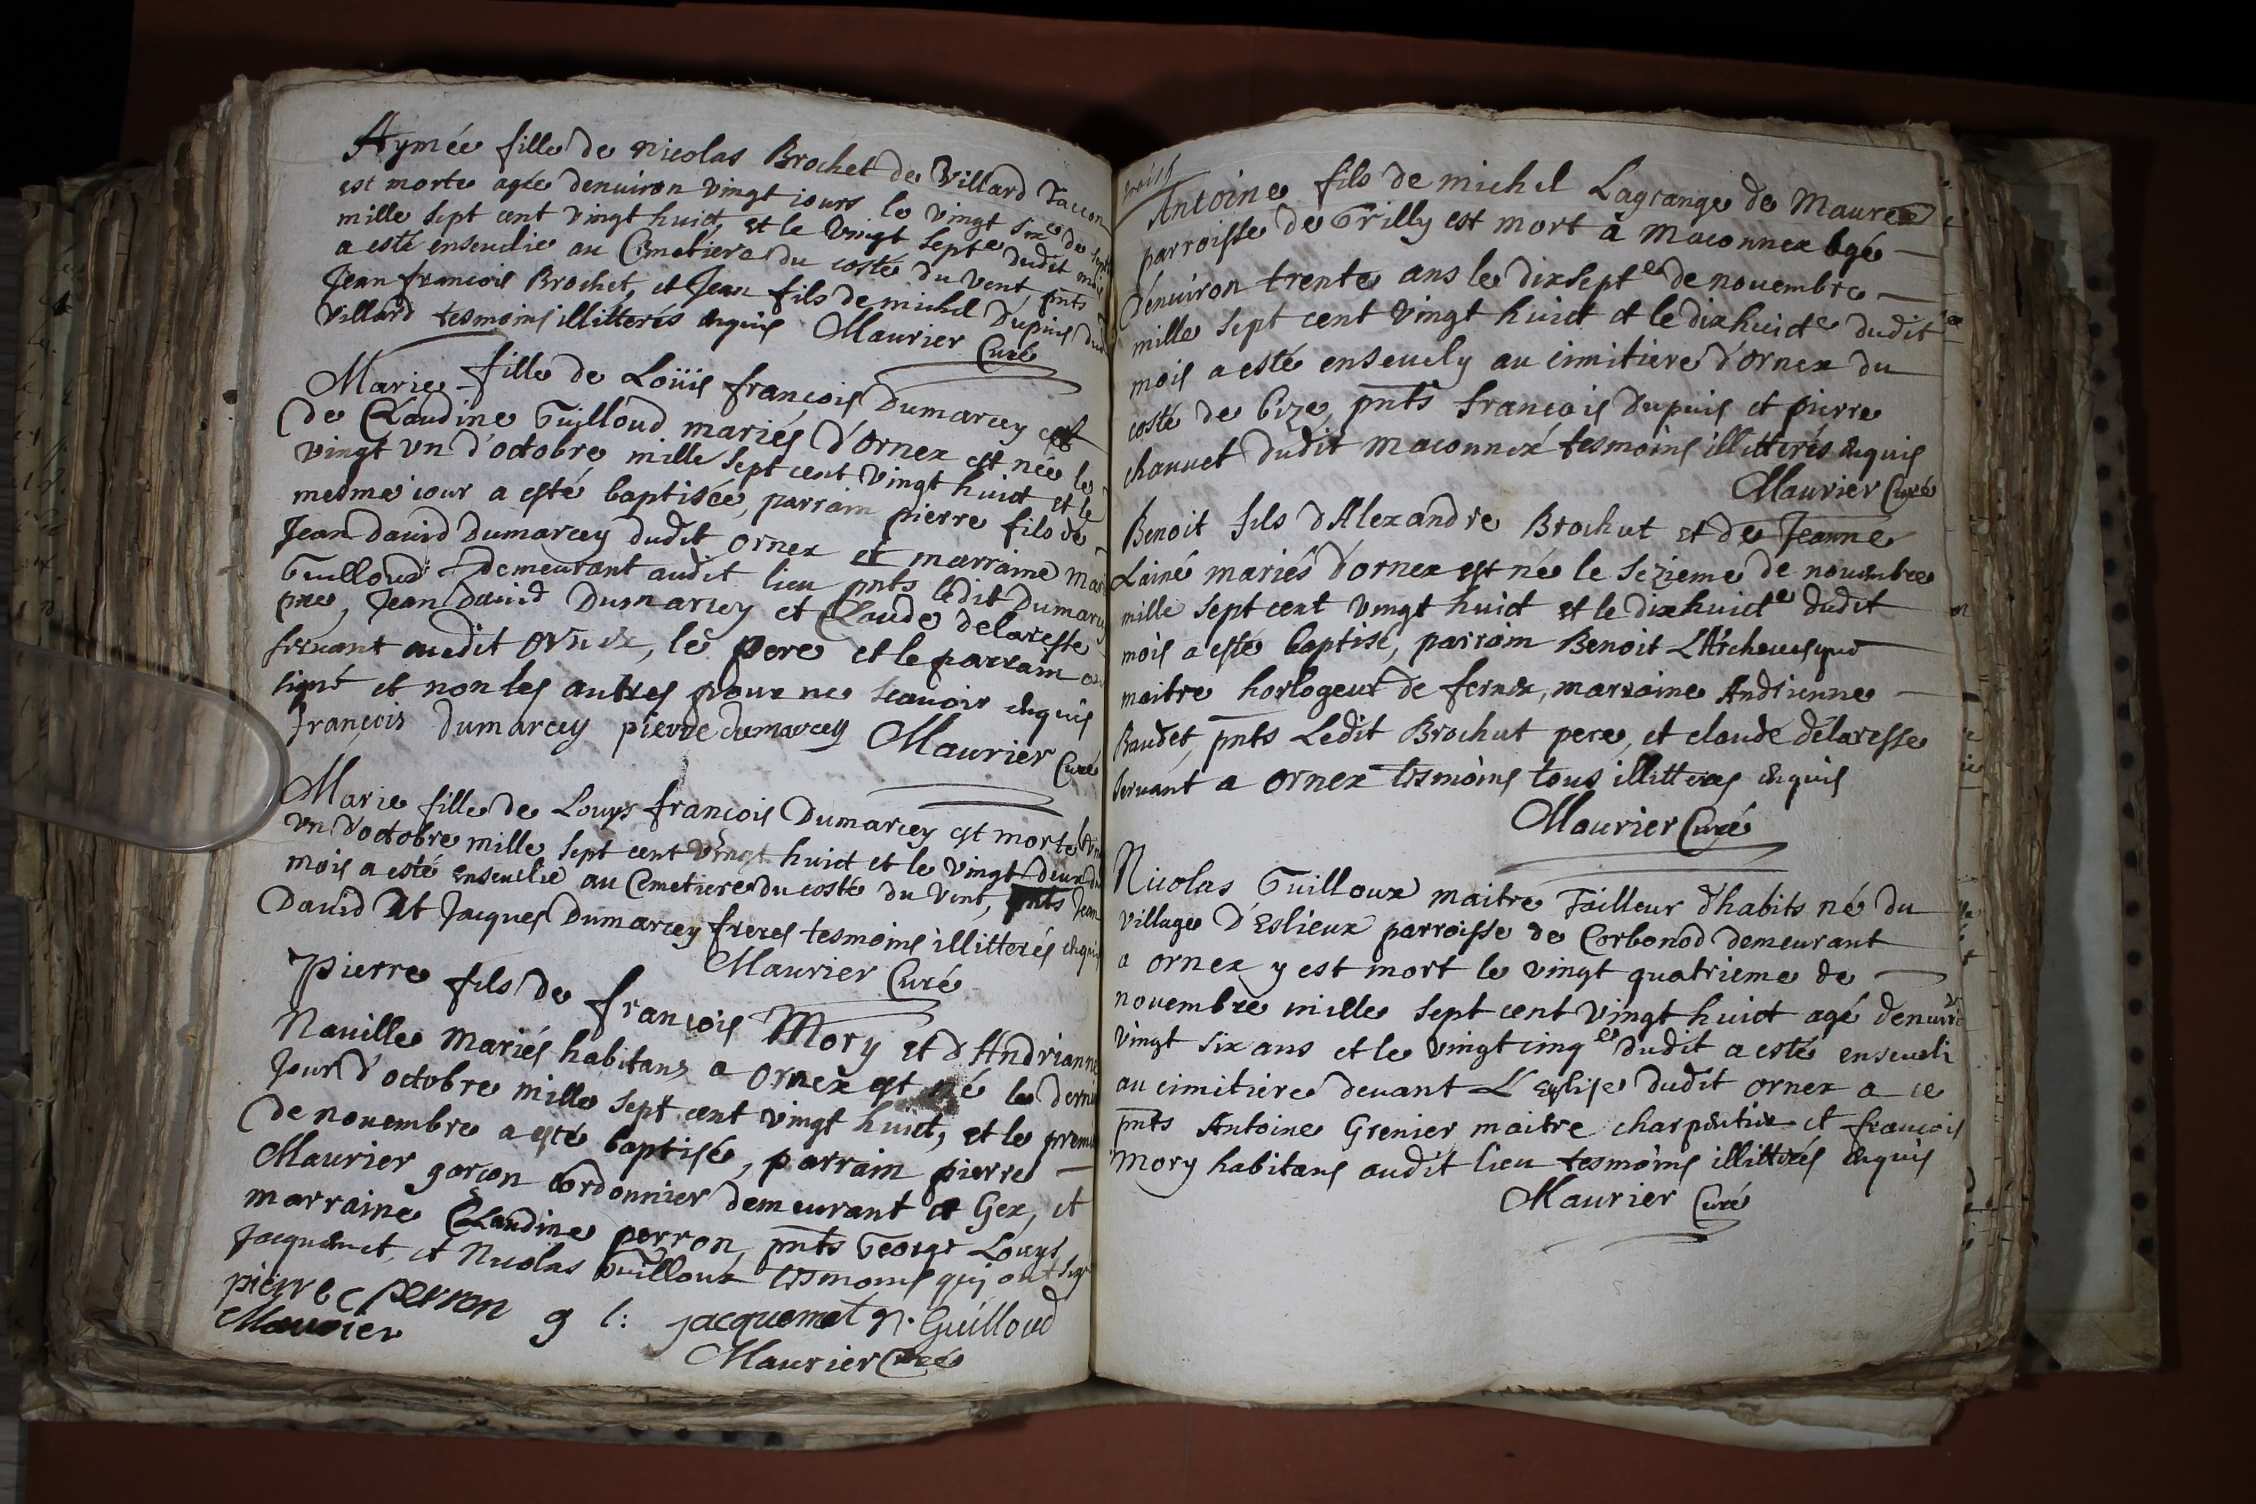 Aymée fille de Nicolas Brochet de Villard Taccon
est morte agée denuiron vingt iours le vingt six^e de sept
mille sept cent vingt huict, et le vingt sept^e dudit mois
a esté enseuelie au Cimetiere du costé du vent, pnts
Jean françois Brochet, et Jean fils de michel Dupuis dud
Villard tesmoins illitterés enquis Maurier Curé
Marie fille de Loüis françois Dumarcey et
de Claudine Guilloud mariés d'ornex est née le
vingt un d'octobre mille sept cent vingt huict et le
mesme iour a esté baptisée, parrain pierre fils de
Jean David Dumarcey dudit ornex et marraine
Guilloud demeurant audit lieu pnts ledit Dumarcey
pere, Jean David Dumarcey et Claude delaresse
seruant audit ornex, le pere et le parrain ont
signé et non les autres pour ne scauoir enquis
françois dumarcey pierre dumarcey Maurier Curé
Marie fille de Louys françois Dumarcey est morte le vin
un d'octobre mille sept cent vingt huict et le vingt deux du
mois a esté enseuelie au Cemetiere du costé du vent, pnts Jean
David Et Jacques Dumarcey freres tesmoins illitterés enquis
Maurier Curé
Pierre fils de françois Mory et d'Andrianne
Nauille mariés habitans a ornex est né le dernier
Jour d'octobre mille sept cent vingt huict, et le premi
de nouembre a esté baptisé, parrain pierre
Maurier garçon cordonnier demeurant a Gex, et
marraine Claudine perron, pnts George Louys
Jacquemet, et Nicolas Guilloux tesmoins qui ont sig
pierre c perron g l: jacquemet n. Guilloud
Maurier
Maurier Curé
Antoine fils de michel Lagrange de Maurex
parroisse de Grilly est mort à maconnex agé
d'enuiron trente ans le dixsept^e de nouembre
mille sept cent vingt huict et le dixhuict^e dudit
mois a esté enseuely au cimitiere d'ornex du
costé de bize, pnts françois dupuis et pierre
chauuet dudit maconnex tesmoins illitterés enquis
Maurier Curé
Benoit fils d'Alexandre Brochut et de Jeanne
Lainé mariés d'ornex est né le sezieme de nouembre
mille sept cent vingt huict et le dixhuict^e dudit
mois a esté baptisé, parrain Benoit L'Archeuesque
maitre horlogeur de fernex, marraine Andrienne
Baudet, pnts Ledit Brochut pere, et claude delaresse
seruant a ornex tesmoins tous illitterés enquis
Maurier Curé
Nicolas Guilloux maitre Tailleur d'habits né du
village d'Eslieux parroisse de Corbonod demeurant
a ornex y est mort le vingt quatrieme de
nouembre mille sept cent vingt huict agé denuiro
vingt six ans et le vingt cinq^e dudit a esté enseueli
au cimitiere deuant L'eglise dudit ornex a ce
pnts Antoine Grenier maitre charpentier et françois
Mory habitans audit lieu tesmoins illitterés enquis
Maurier Curé